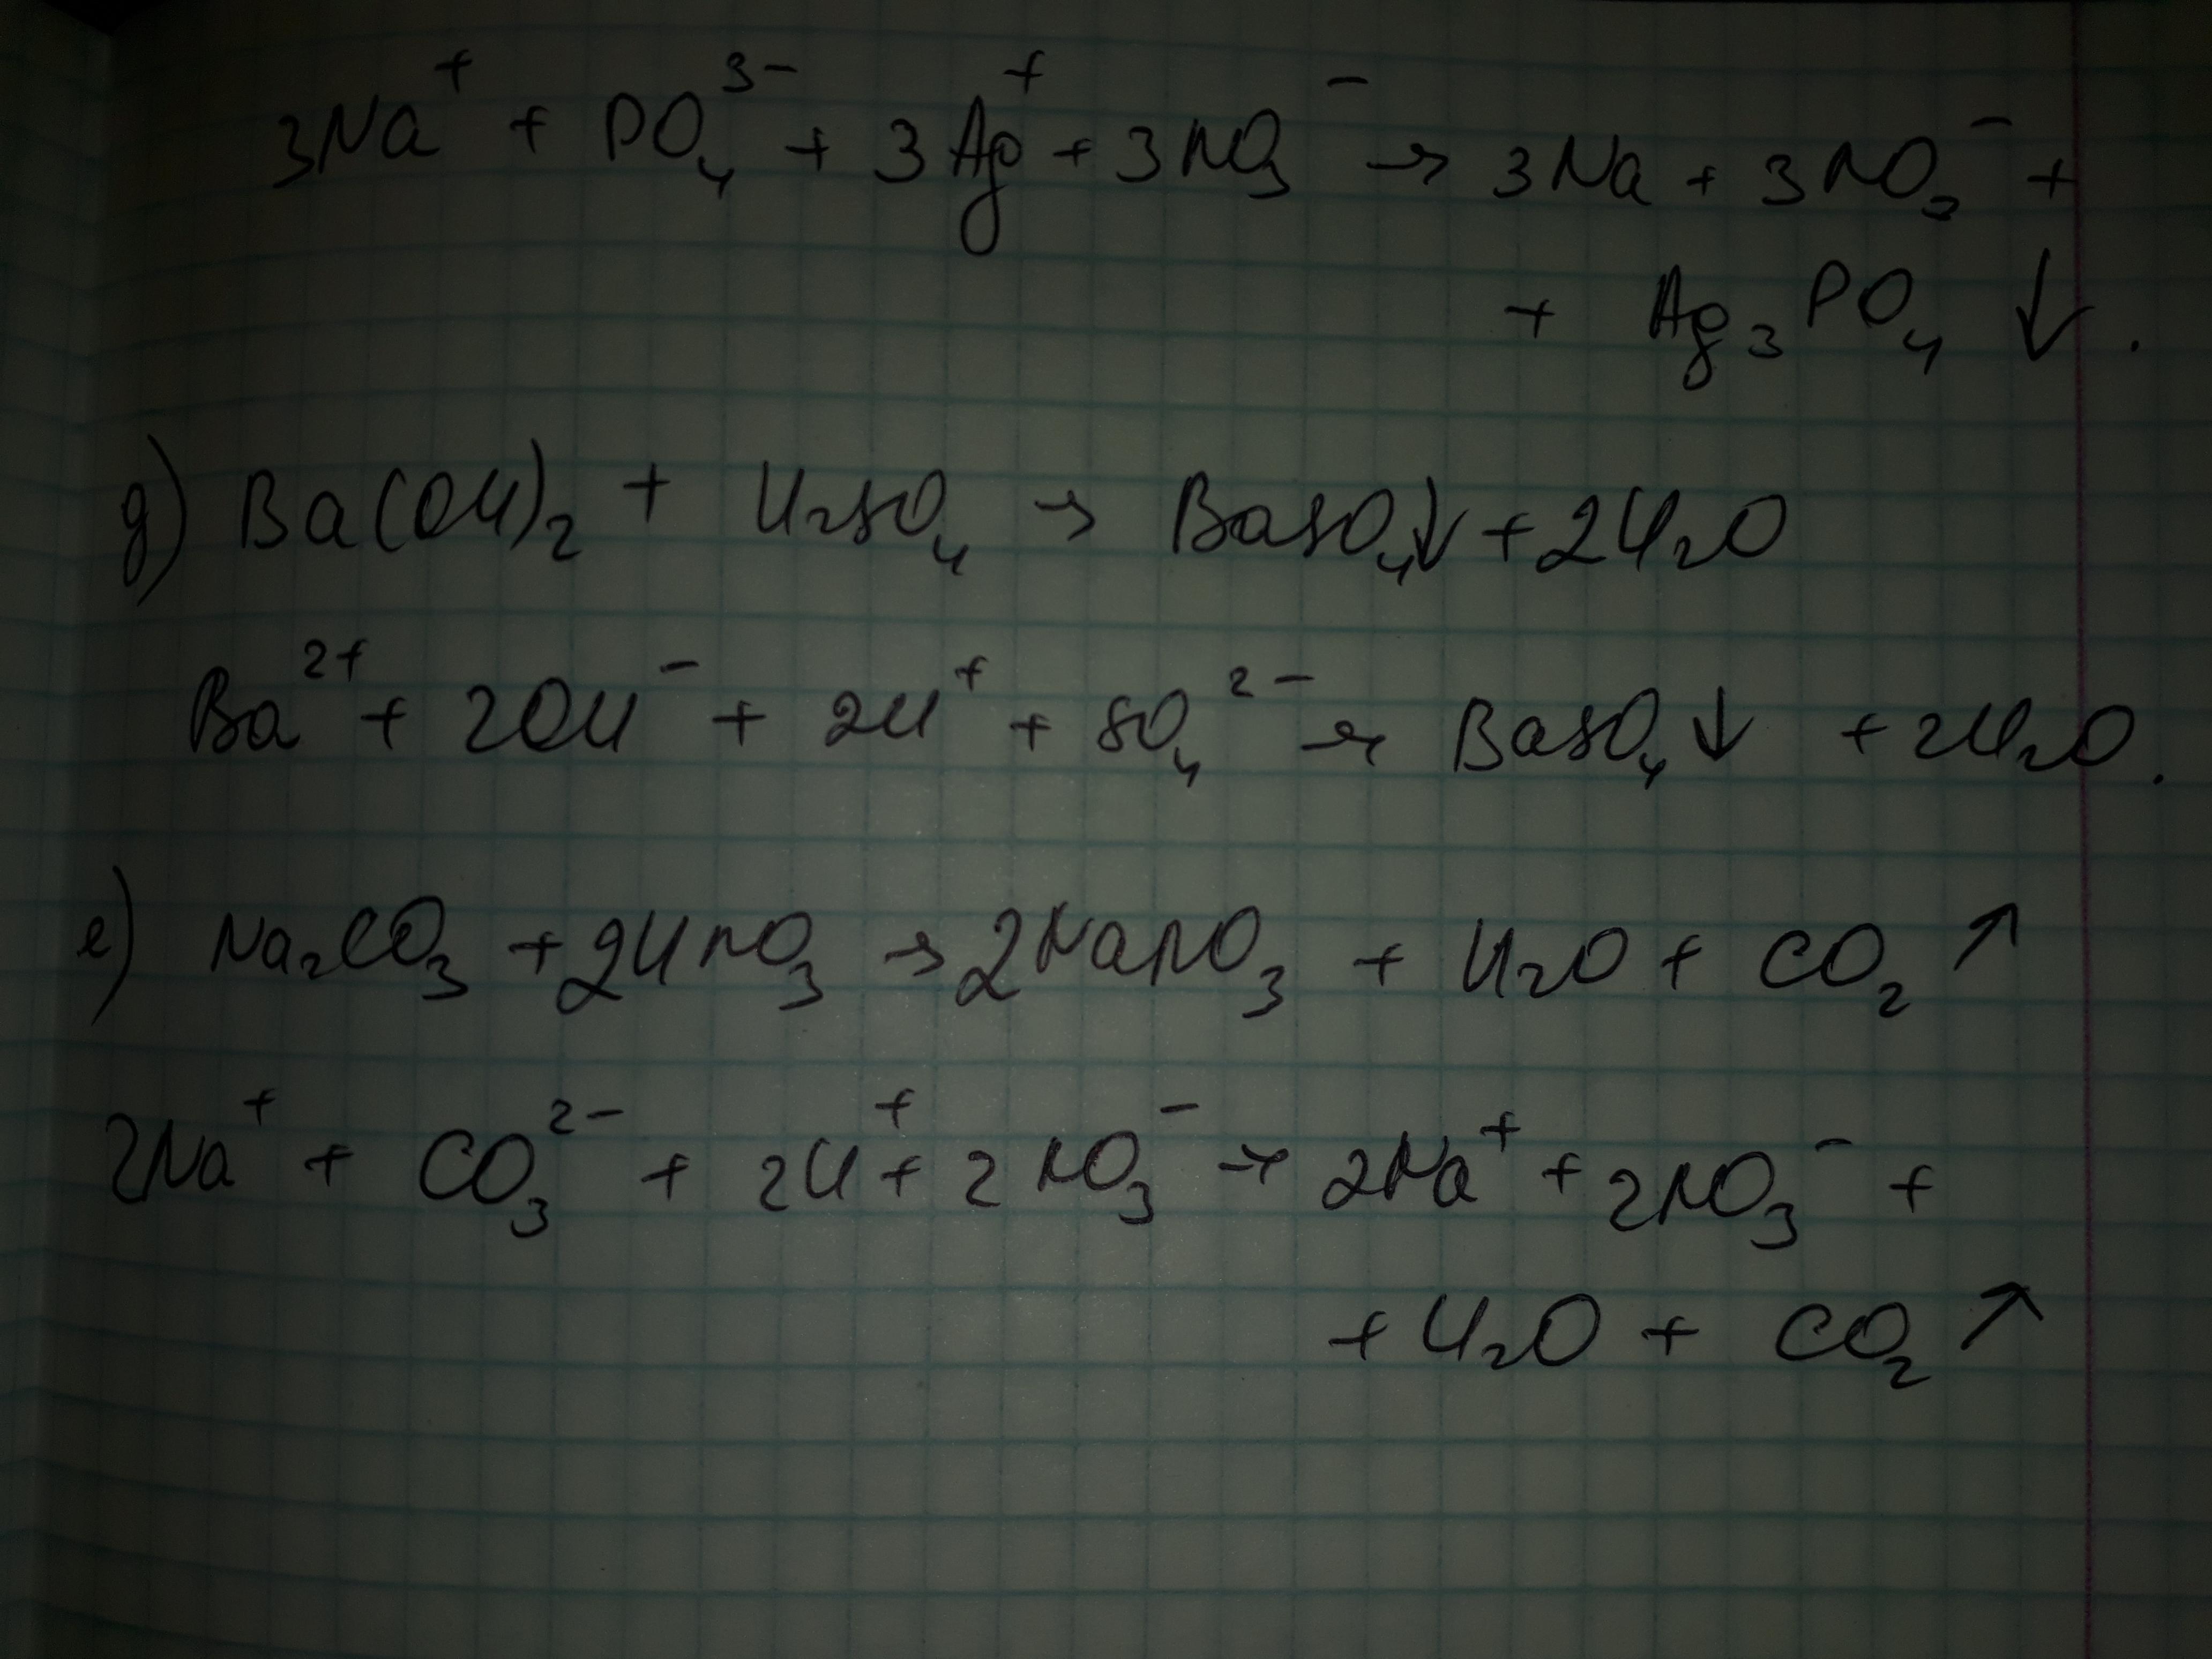 3Na⁺ + PO₄³⁻ + 3Ag⁺ + 3NO₃⁻ → 3Na + 3NO₃⁻ +
+ Ag₃PO₄ ↓.
д) Ba(OH)₂ + H₂SO₄ → BaSO₄↓ + 2H₂O
Ba²⁺ + 2OH⁻ + 2H⁺ + SO₄²⁻ → BaSO₄↓ + 2H₂O.
е) Na₂CO₃ + 2HNO₃ → 2NaNO₃ + H₂O + CO₂↑
2Na⁺ + CO₃²⁻ + 2H⁺ + 2NO₃⁻ → 2Na⁺ + 2NO₃⁻ +
+ H₂O + CO₂↑